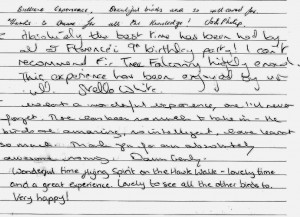 Brilliant Experience, Beautiful birds and so well cared for.
Thanks to Dave for all the Knowledge!
Absolutely the best time has been had by
all at Florence's 9th birthday party! I can't
recommend Fir Tree Falconry highly enough.
This experience has been enjoyed by us
all Stella White.
What a wonderful experience, one I'll never
forget. There has been so much to take in - the
birds are amazing, so intelligent, have learnt
so much. Thank you for an absolutely
awesome morning. Dawn
Wonderful time flying Spirit on the Hawk Walk - lovely time
and a great experience. Lovely to see all the other birds to.
Very happy!